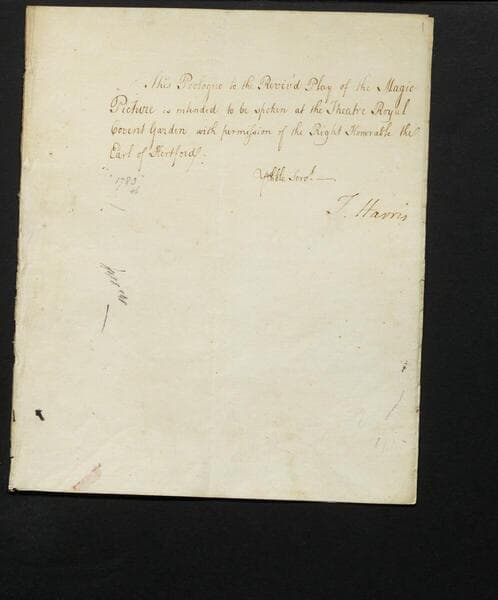 This Prologue to the Reviv'd Play of the Magic
Picture is intended to be spoken at the Theatre Royal
Covent Garden with permission of the Right Honorable the
Earl of Hertford.
Serv.t
T. Harris
1783